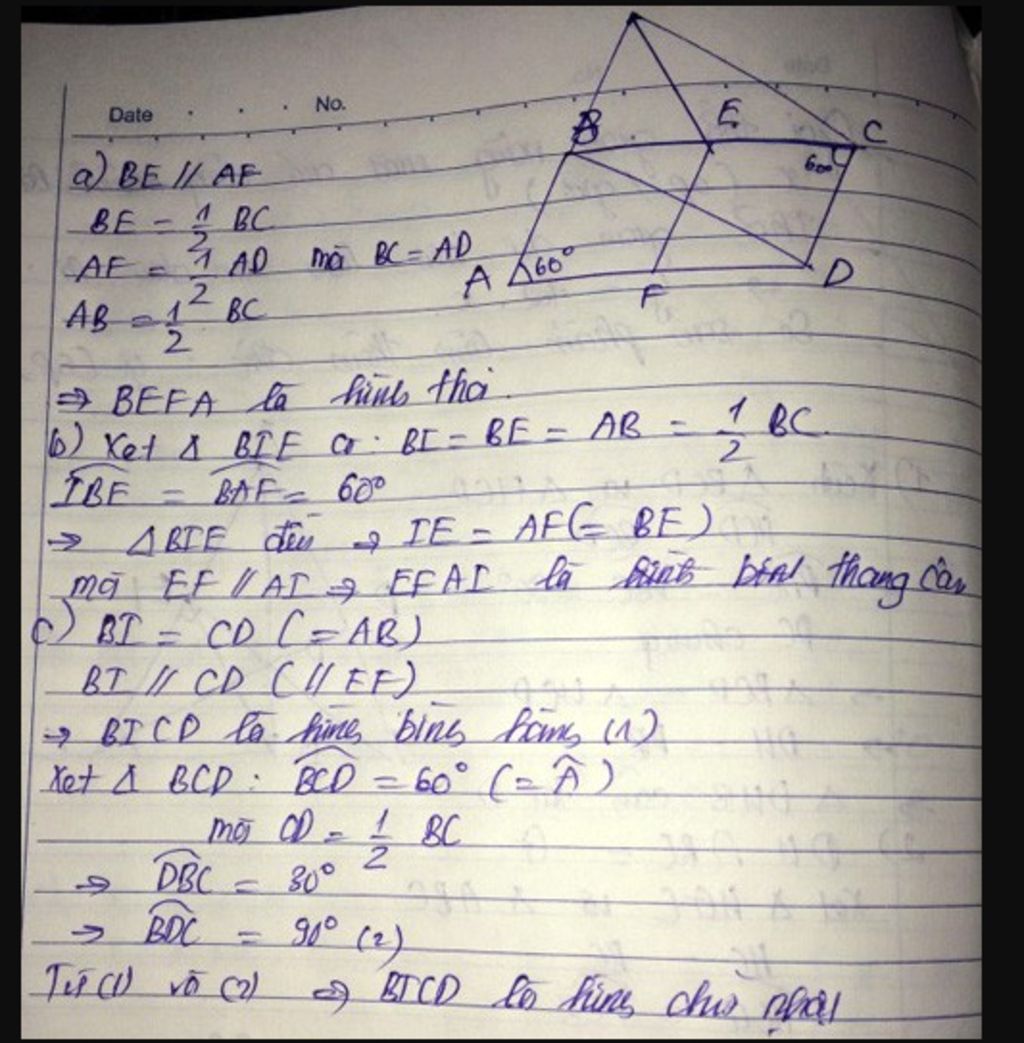 Date . . . No.
B E C
60°
A 60° F D
a) BE // AF
BE = 1/2 BC
AF = 1/2 AD mà BC = AD
AB = 1/2 BC
=> BEFA là hình thoi
b) Xet Δ BIE có: BI = BE = AB = 1/2 BC.
IBE = BAF = 60°
=> Δ BIE đều => IE = AF (= BE)
mà EF // AI => EFAI là hình thang cân
c) BI = CD (= AB)
BI // CD (// EF)
=> BICD là hình bình hành (1)
Xet Δ BCD: BCD = 60° (= Â)
mà CD = 1/2 BC
=> DBC = 30°
=> BDC = 90° (2)
Từ (1) và (2) => BICD là hình chữ nhật